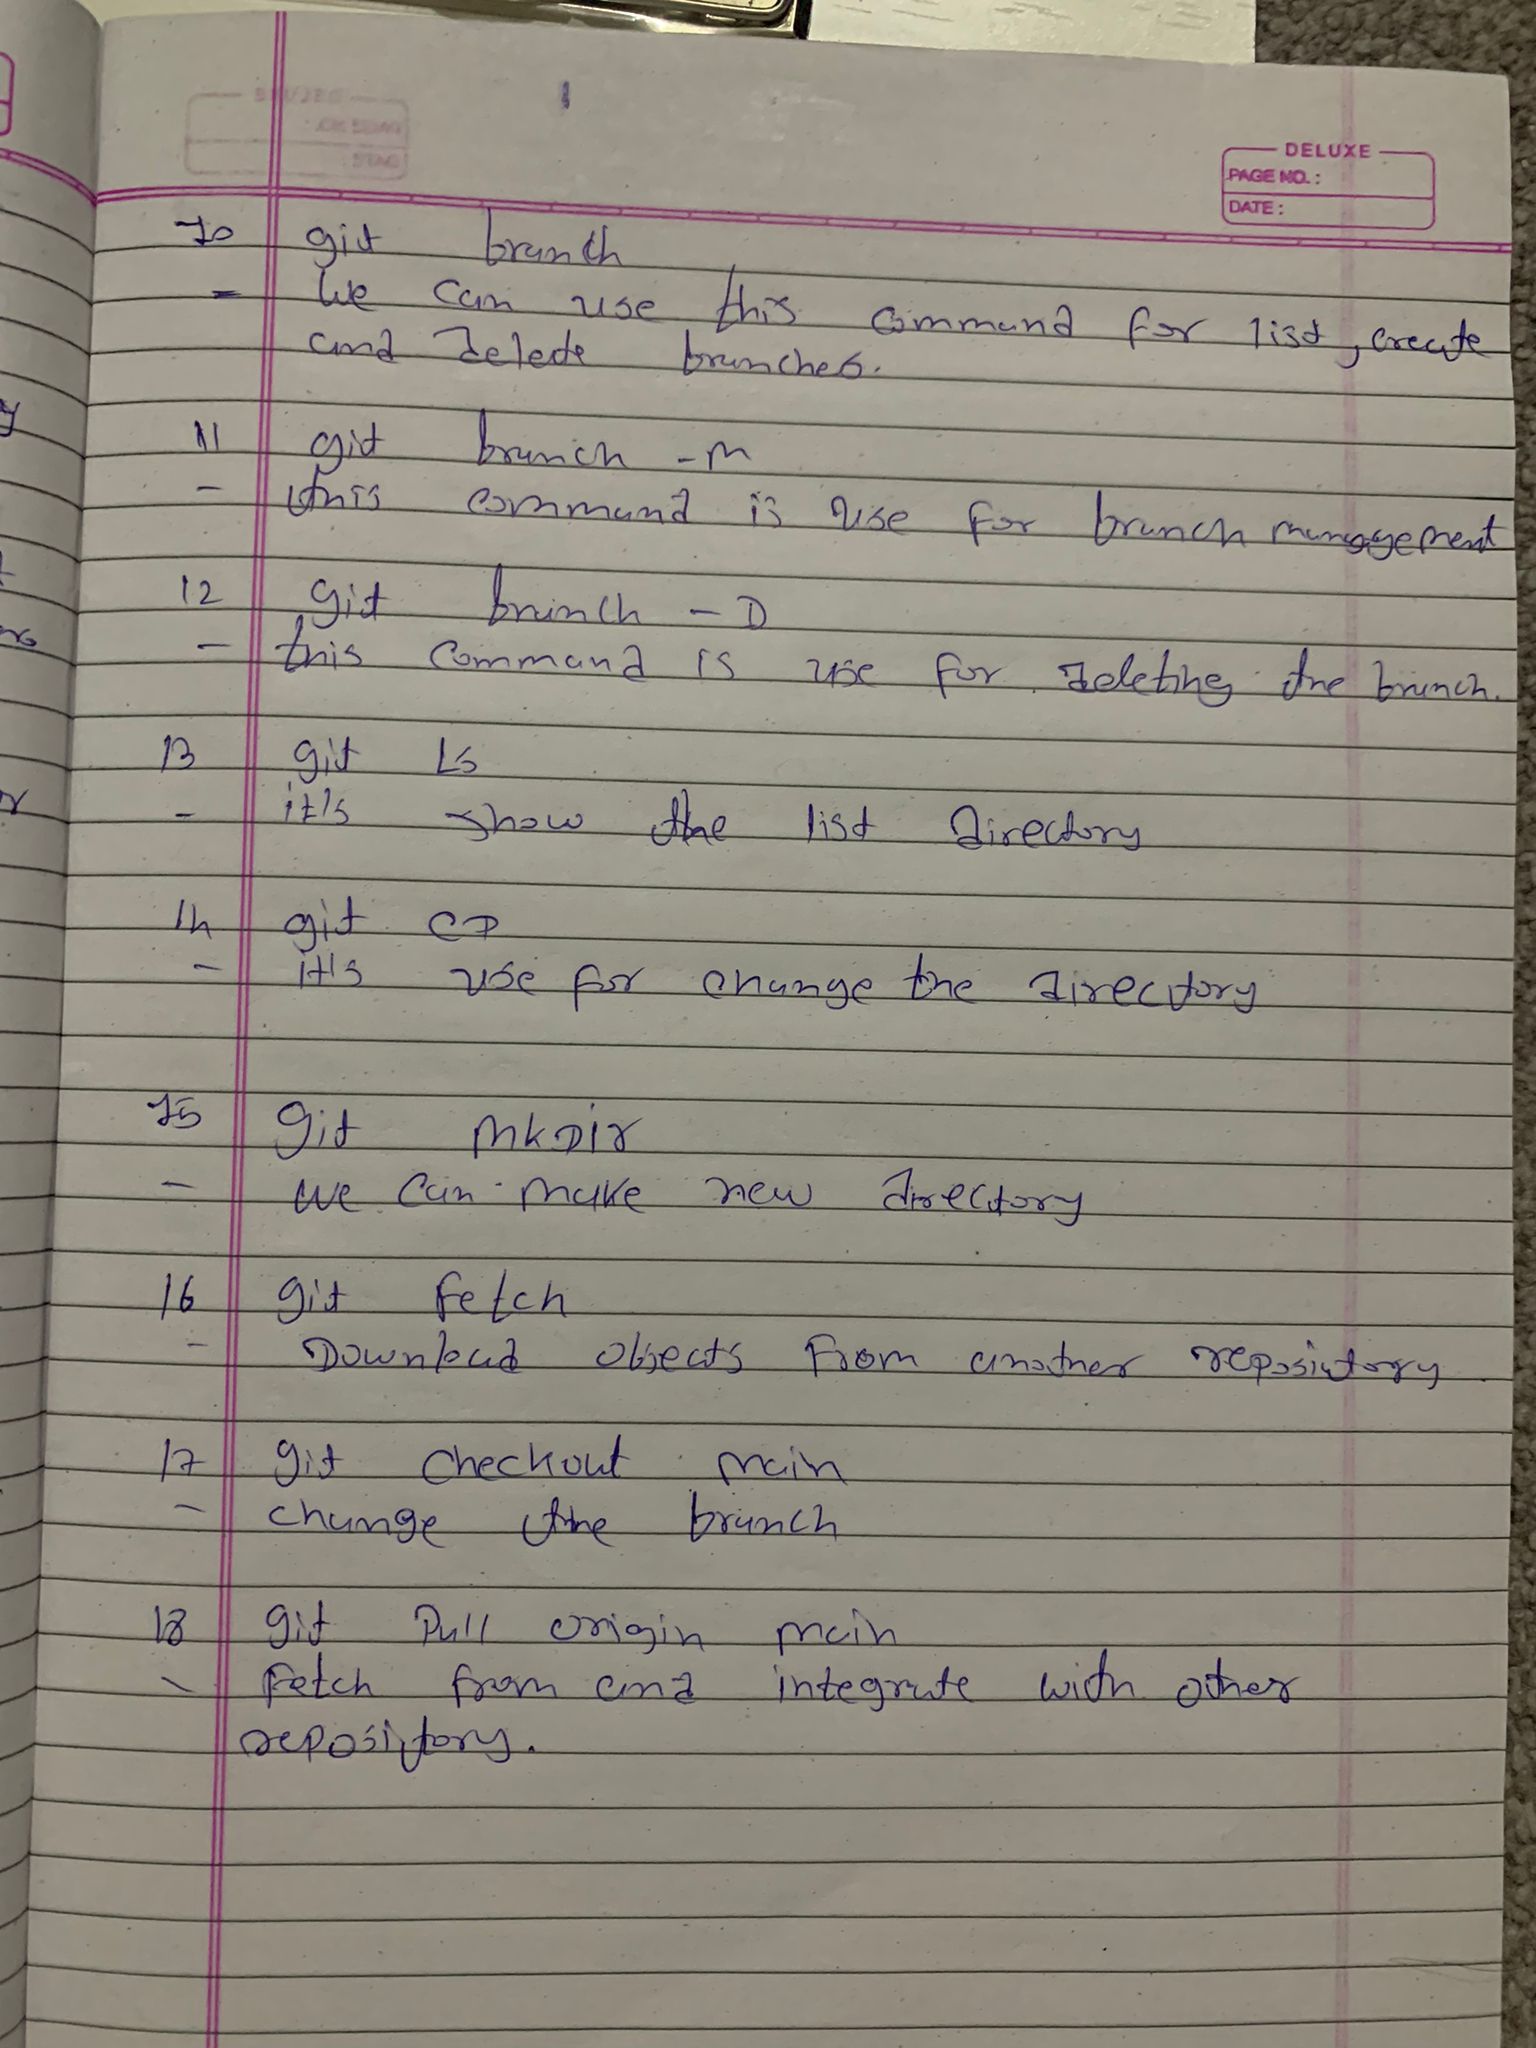 DELUXE
PAGE NO.:
DATE:
10 git branch
- We can use this command for list, create
and delete branches.
11 git branch -m
- this command is use for branch management
12 git branch - D
- this command is use for deleting the branch.
13 git Ls
- it's show the list directory
14 git CD
- it's use for change the directory
15 git mkDIr
- we can make new directory
16 git fetch
- Download objects from another repository.
17 git checkout main
- change the branch
18 git Pull origin main
- Fetch from and integrate with other
repository.